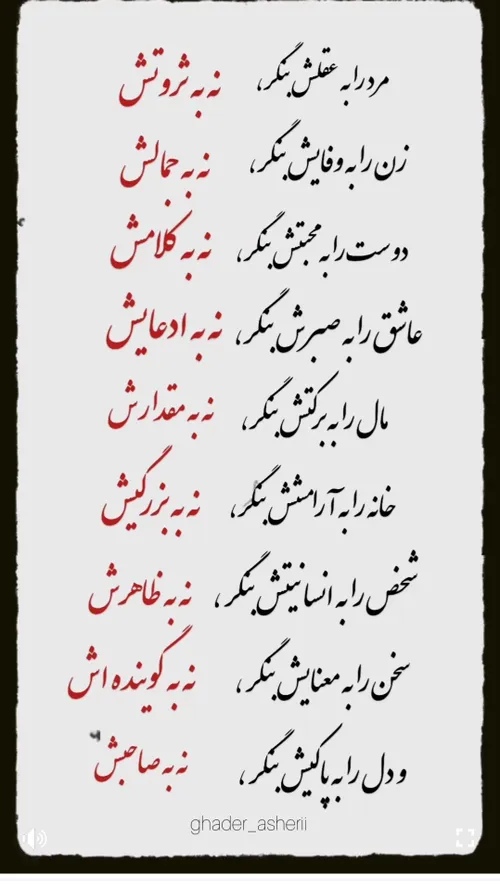 مرد را به عقلش بنگر، نه به ثروتش
زن را به وفایش بنگر، نه به جمالش
دوست را به محبتش بنگر، نه به کلامش
عاشق را به صبرش بنگر، نه به ادعایش
مال را به برکتش بنگر، نه به مقدارش
خانه را به آرامشش بنگر، نه به بزرگیش
شخص را به انسانیتش بنگر، نه به ظاهرش
سخن را به معنایش بنگر، نه به گوینده اش
و دل را به پاکیش بنگر، نه به صاحبش
ghader_asherii